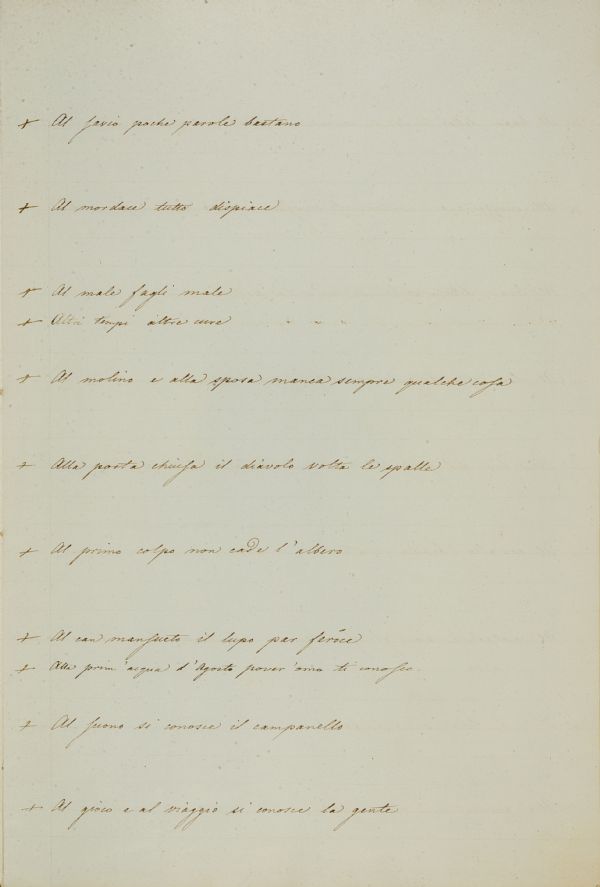 + Al savio poche parole bastano
+ Al mordace tutto dispiace
+ Al male fagli male
+ Altri tempi altre cure
+ Al molino e alla sposa manca sempre qualche cosa
+ Alla porta chiusa il diavolo volta le spalle
+ Al primo colpo non cade l'albero
+ Al can mansueto il lupo par feroce
+ Alla prim'acqua d'Agosto pover'omo ti conosco
+ Al suono si conosce il campanello
+ Al gioco e al viaggio si conosce la gente